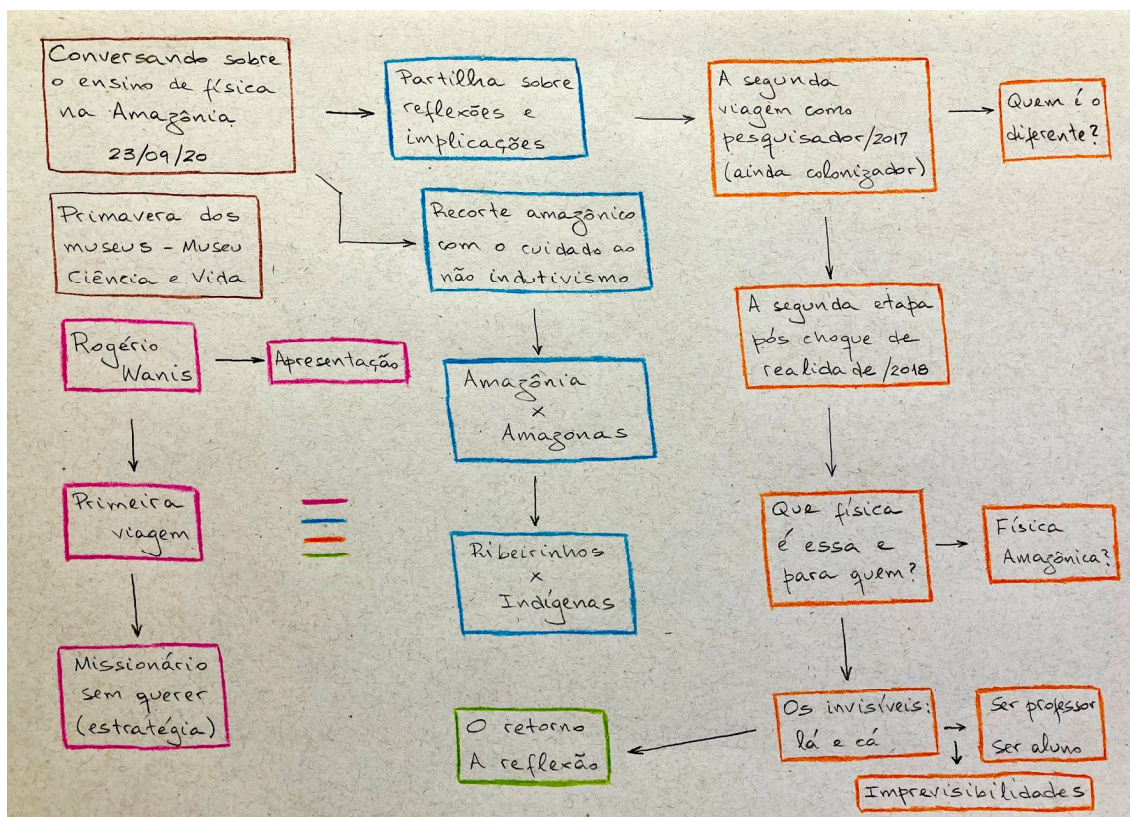 Conversando sobre
o ensino de física
na Amazônia
23/09/20
Primavera dos
museus - Museu
Ciência e Vida
Rogério
Wanis
Apresentação
Primeira
viagem
Missionário
sem querer
(estratégia)
Partilha sobre
reflexões e
implicações
Recorte amazônico
com o cuidado ao
não indutivismo
Amazônia
x
Amazonas
Ribeirinhos
x
Indígenas
A segunda
viagem como
pesquisador/2017
(ainda colonizador)
Quem é o
diferente?
A segunda etapa
pós choque de
realidade/2018
Que física
é essa e
para quem?
Física
Amazônica?
Os invisíveis:
lá e cá
Ser professor
Ser aluno
Imprevisibilidades
O retorno
A reflexão